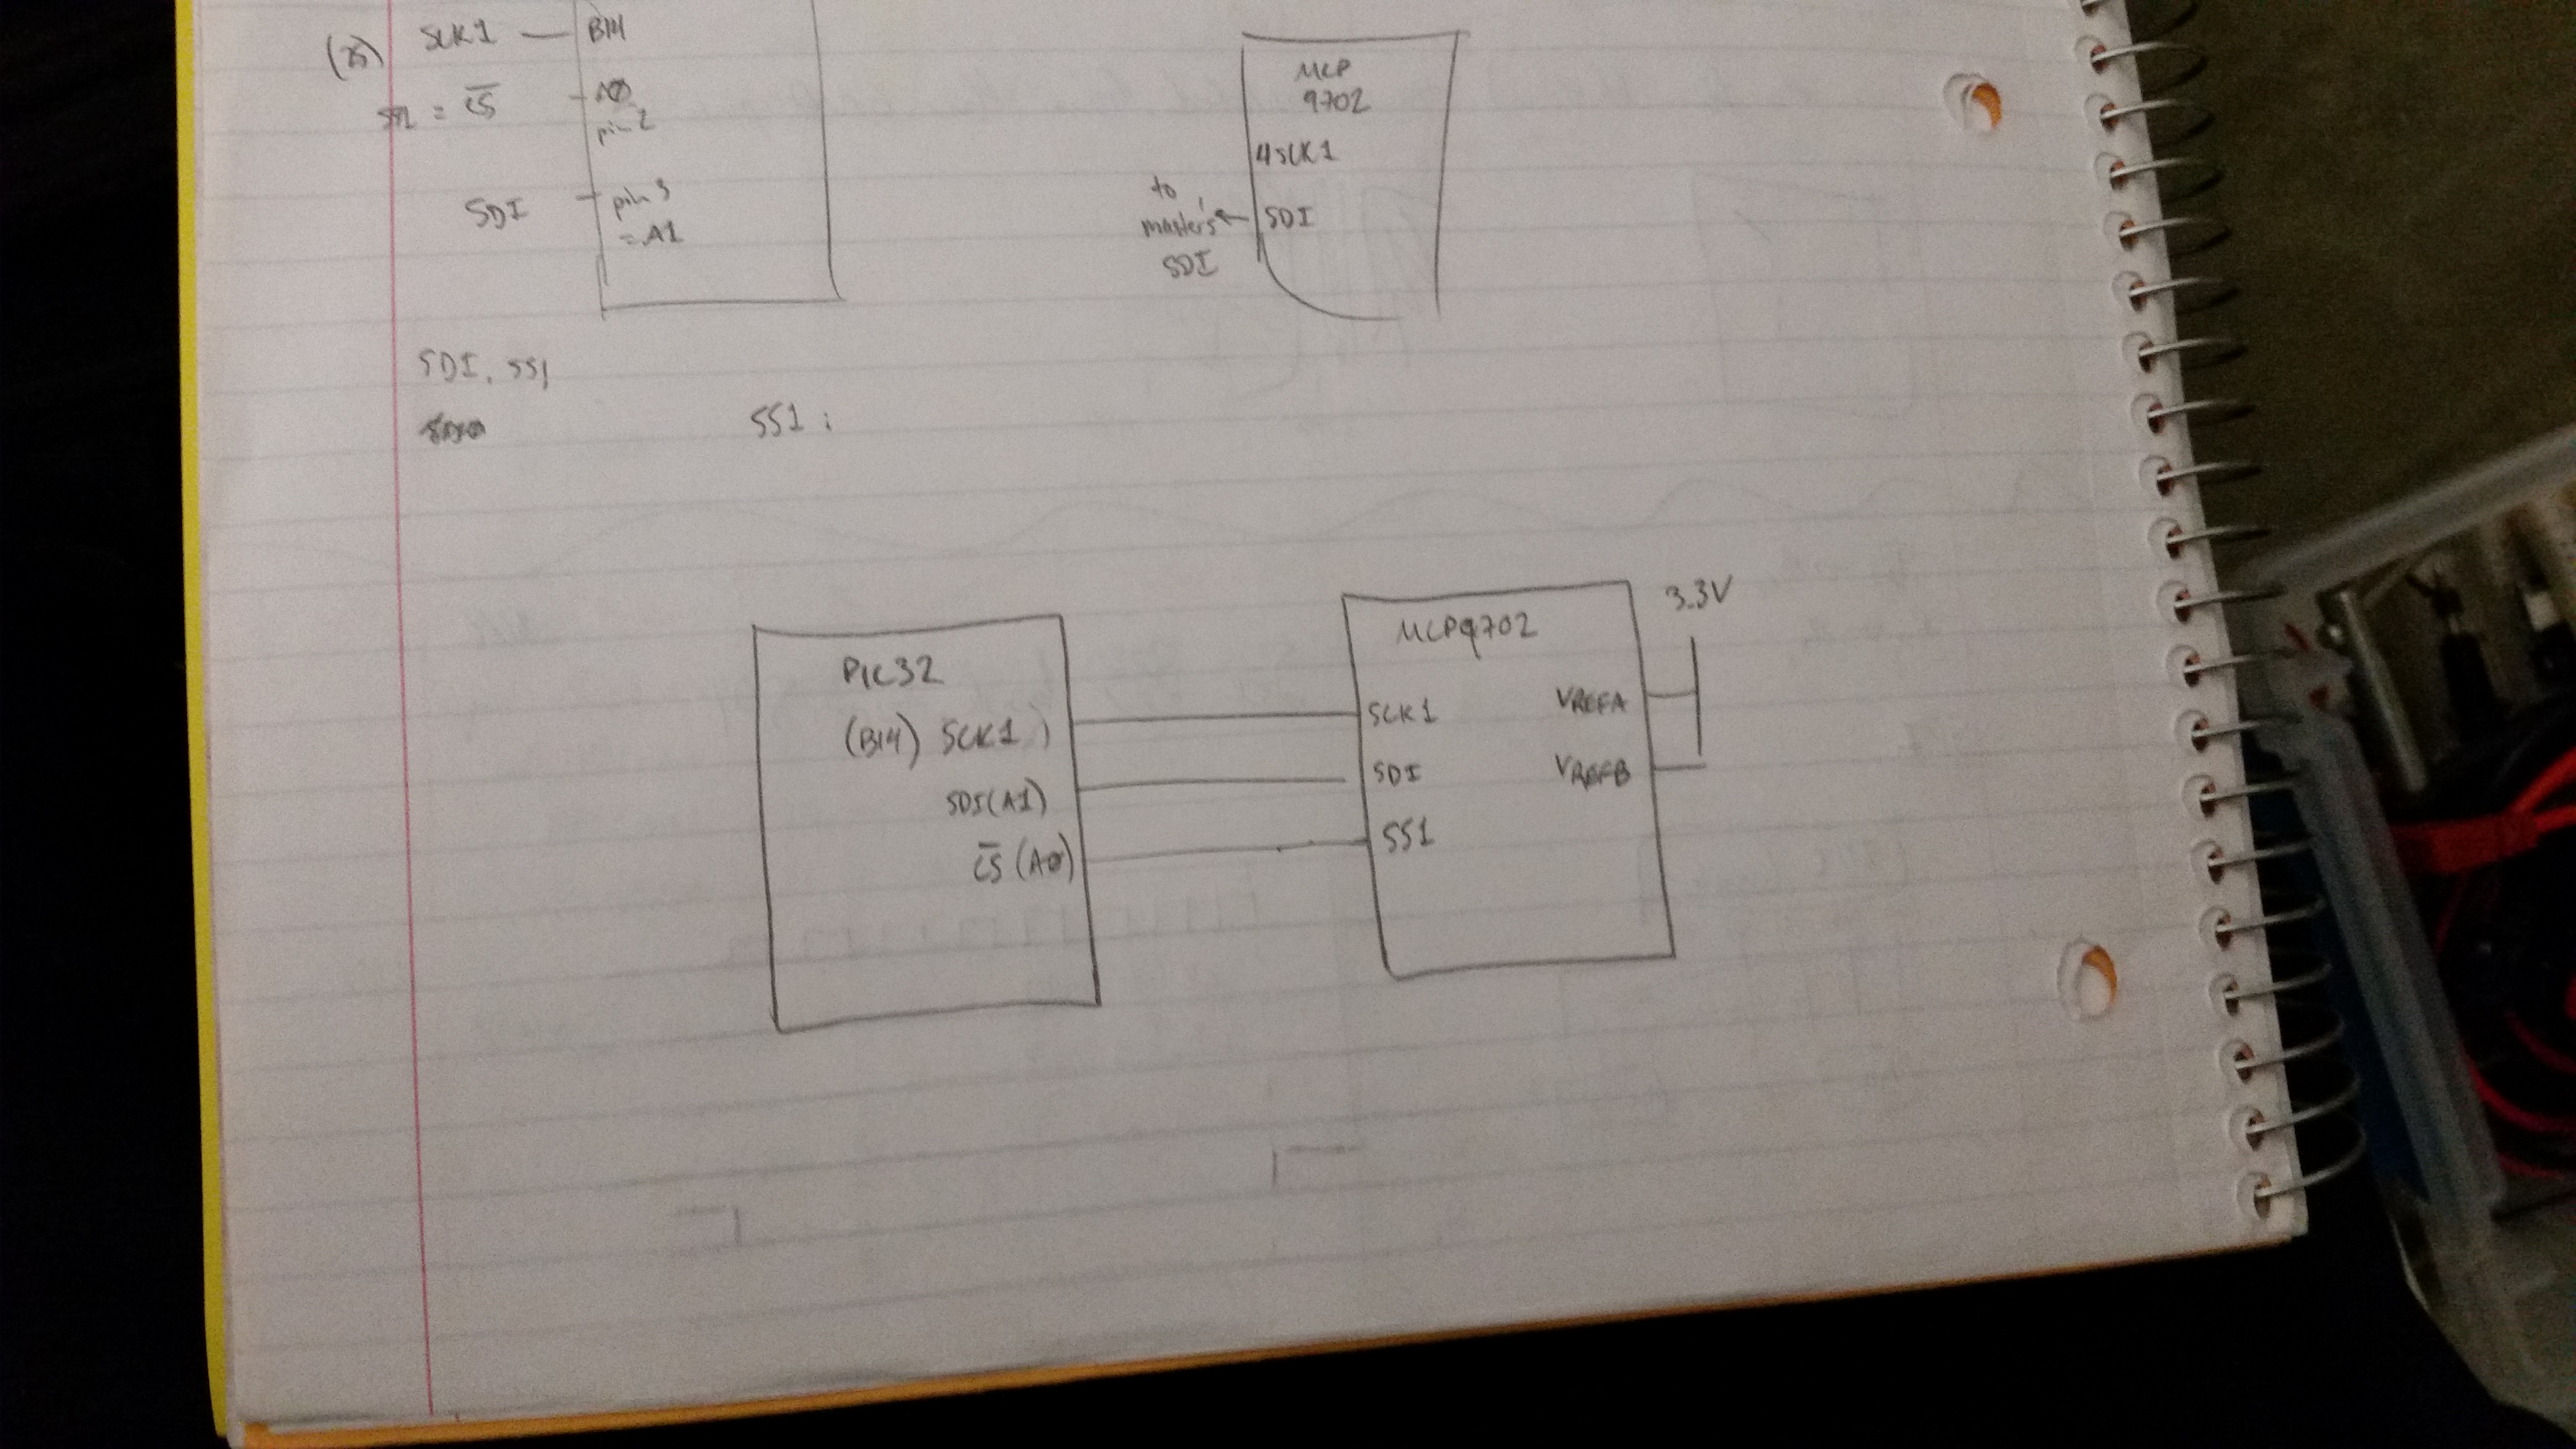 (25) SCK1 — B14
SS1 = C̅S̅ A0
pin 2
SDI pin 3
= A1
MCP
9702
4 SCK1
to
master's
SDI
SDI
SDI, SS1
SS1:
PIC32
(B14) SCK1
SDI(A1)
C̅S̅ (A0)
MCP9702
SCK1
SDI
SS1
VREFA
VREFB
3.3V